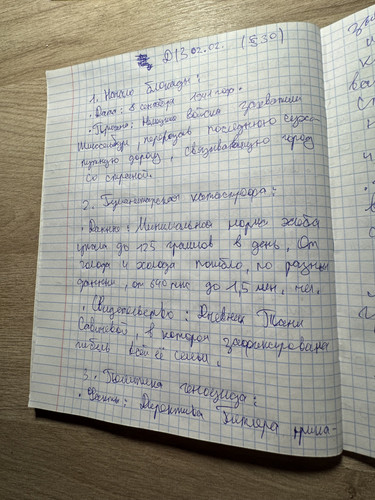 Д/З 02.02. (§ 30)
1. Начало блокады:
• Дата: 8 сентября 1941 год.
• Причина: Немецкие войска захватили
Шлиссельбург, перерезав последнюю сухо-
путную дорогу, связывающую город
со страной.
2. Гуманитарная катастрофа:
• Данные: Минимальная норма хлеба
упала до 125 граммов в день. От
голода и холода погибло, по разным
данным, от 640 тыс до 1,5 млн. чел.
• Свидетельство: Дневник Тани
Савичевой, в котором зафиксирована
гибель всей её семьи.
3. Политика геноцида:
• Факты: Директива Гитлера